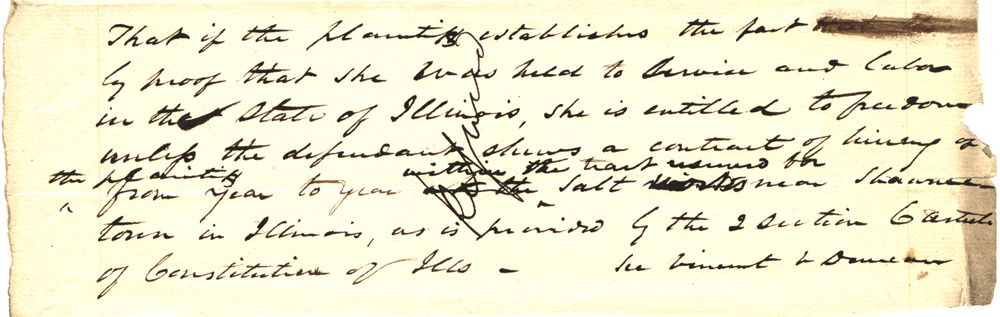 That if the plaintiff establishes the fact
by proof that she was held to service and labor
in the State of Illinois, she is entitled to freedom
unless the defendant shews a contract of hireing of
the plaintiff within the tract reserved for
from year to year the Salt works near Shawnee-
town in Illinois, as is provided by the 2 section 6 article
of Constitution of Ills - See Vincent v Duncan